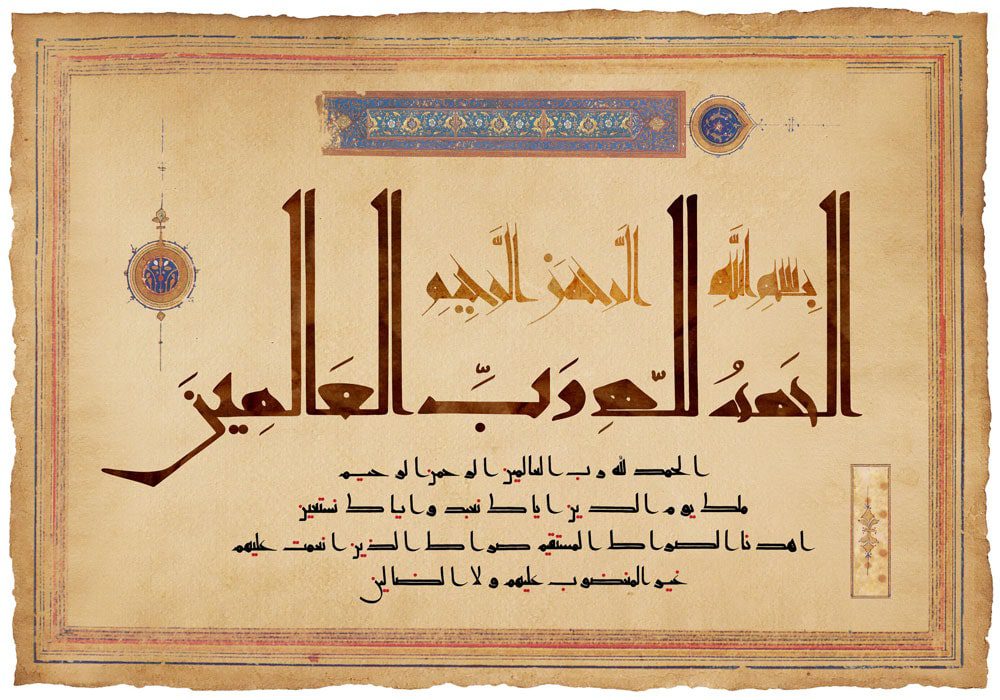 بِسمِ اللَّهِ الرَّحمَنِ الرَّحِيمِ
الحَمدُ للّهِ رَبِّ العَالَمِينَ
الحمد لله رب العالمين الرحمن الرحيم
ملك يوم الدين اياك نعبد و اياك نستعين
اهدنا الصراط المستقيم صراط الذين انعمت عليهم
غير المغضوب عليهم و لا الضالين